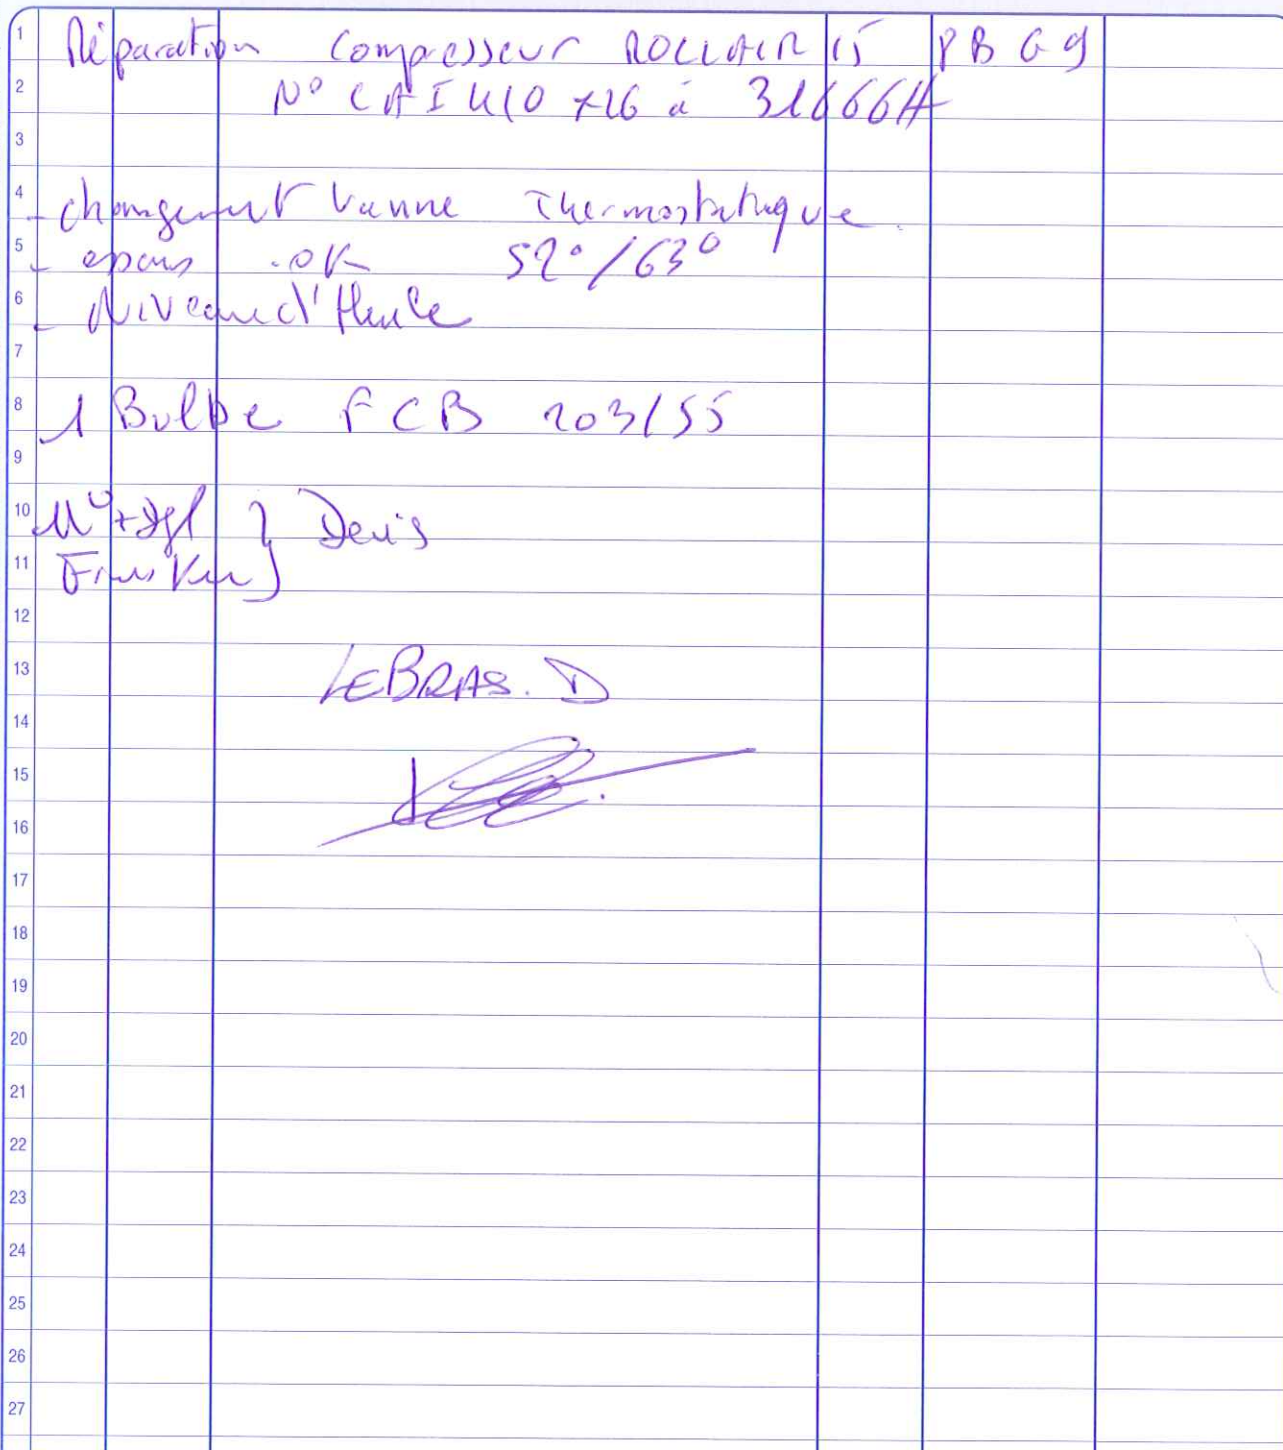 1 Réparation Compresseur ROLLAIR 15 PB G9
2 N° CAI 410 726 à 31666H
3
4 - changement Vanne Thermostatique.
5 - essais .OK 52°/63°
6 - Niveau d'Huile
7
8 1 Bulbe FCB 203/55
9
10 M° + Dpl } Devis
11
12
13 LEBRAS. D
14
15
16
17
18
19
20
21
22
23
24
25
26
27